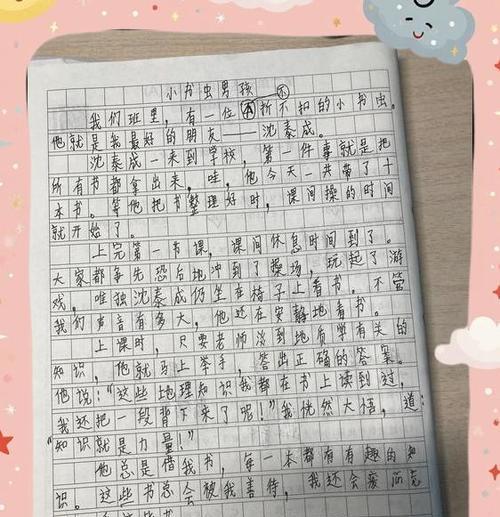 小书虫男孩
我们班里，有一位不折不扣的小书虫。
他就是我最好的朋友——沈秦成。
沈秦成一来到学校，第一件事就是把
所有书都拿出来，哇，他今天一共带了十
本书。等他把书整理好时，课间操的时间
就开始了。
上完第一节课，课间休息时间到了。
大家都争先恐后地冲到了操场，玩起了游
戏，唯独沈秦成仍坐在椅子上看书。不管
我们声音有多大，他还在安静地看书。
上课时，只要老师谈到地质学有关的
知识，他就马上举手，答出正确的答案。
他说：“这些地理知识我都在书上读到过，
我还把一段背下来了呢！”我恍然大悟，道：
“知识就是力量！”
他总是借我书，每一本都有有趣的知
识。这些书总会被我善待，我还会废